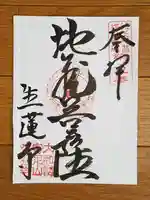 奉拝
地蔵菩薩
生蓮寺